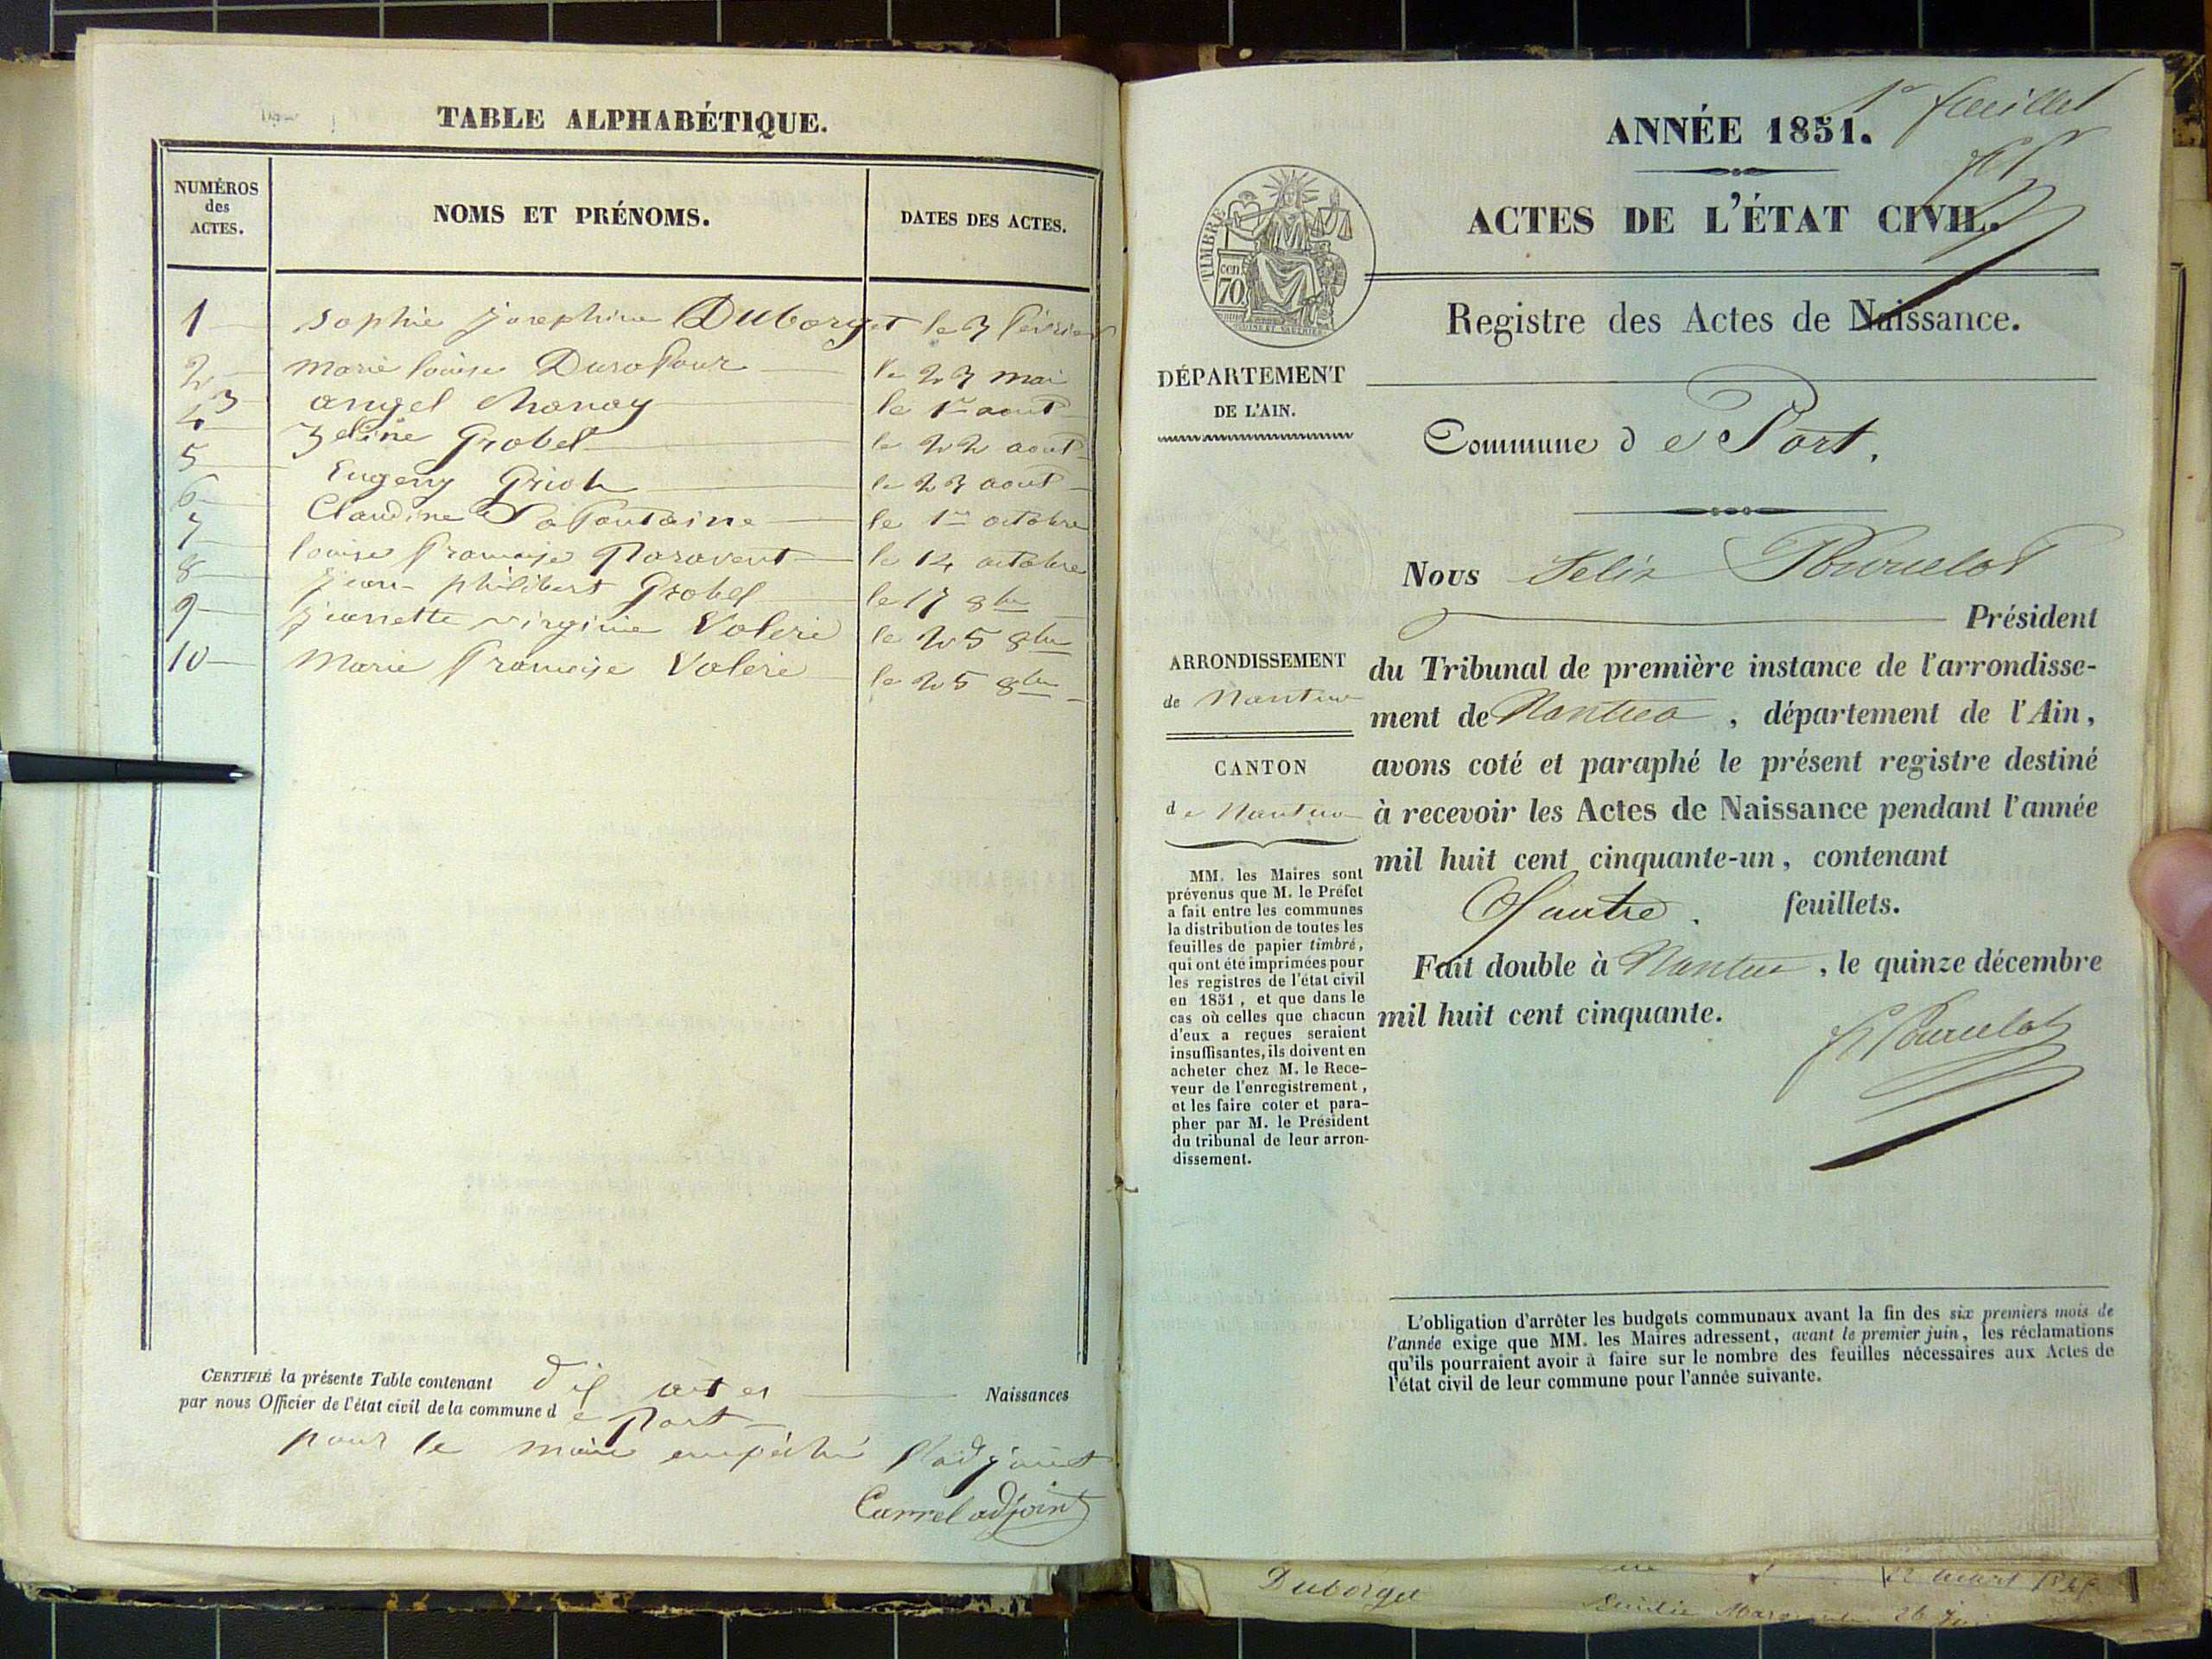 TABLE ALPHABÉTIQUE.
NUMÉROS
des
ACTES.
NOMS ET PRÉNOMS.
DATES DES ACTES.
1 Sophie josephine Duborget le 7 février
2 marie louise Durafour le 27 mai
3 angel Chanay le 1er aout
4 Zeline Grobel le 22 aout
5 Eugeny le 27 aout
6 Claudine Lafontaine le 1er octobre
7 louise francoise Paravent le 14 octobre
8 jean philibert Grobel le 17 8bre
9 jeannette virginie Valerie le 25 8bre
10 Marie francoise Valerie le 25 8bre
CERTIFIÉ la présente Table contenant dix actes Naissances
par nous Officier de l'état civil de la commune de Port
pour le maire empéché l'adjoint
Carrel adjoint
1er feuillet
ANNÉE 1851.
ACTES DE L'ÉTAT CIVIL.
TIMBRE
cen.
70
Registre des Actes de Naissance.
DÉPARTEMENT
DE L'AIN.
Commune de Port.
Nous Felix Pourcelot
Président
ARRONDISSEMENT
de Nantua
CANTON
de Nantua
du Tribunal de première instance de l'arrondisse-
ment de Nantua, département de l'Ain,
avons coté et paraphé le présent registre destiné
à recevoir les Actes de Naissance pendant l'année
mil huit cent cinquante-un, contenant
Quatre. feuillets.
Fait double à Nantua, le quinze décembre
mil huit cent cinquante.
F Pourcelot
MM. les Maires sont
prévenus que M. le Préfet
a fait entre les communes
la distribution de toutes les
feuilles de papier timbré,
qui ont été imprimées pour
les registres de l'état civil
en 1851, et que dans le
cas où celles que chacun
d'eux a reçues seraient
insuffisantes, ils doivent en
acheter chez M. le Rece-
veur de l'enregistrement,
et les faire coter et para-
pher par M. le Président
du tribunal de leur arron-
dissement.
L'obligation d'arrêter les budgets communaux avant la fin des six premiers mois de
l'année exige que MM. les Maires adressent, avant le premier juin, les réclamations
qu'ils pourraient avoir à faire sur le nombre des feuilles nécessaires aux Actes de
l'état civil de leur commune pour l'année suivante.
Duborget